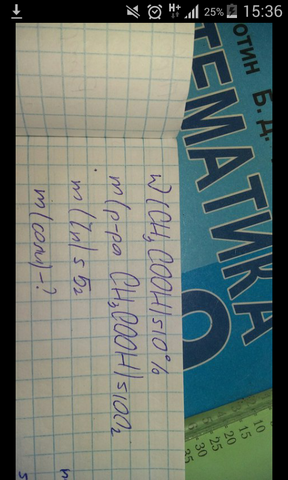 15:36
25%
H+
отин Б. Д.
ТЕМАТИКА
ω(CH3COOH)=10%
m(р-ра CH3COOH)=100г
m(Zn)=5г
m(соли)-?
35 30 25 20 15 10